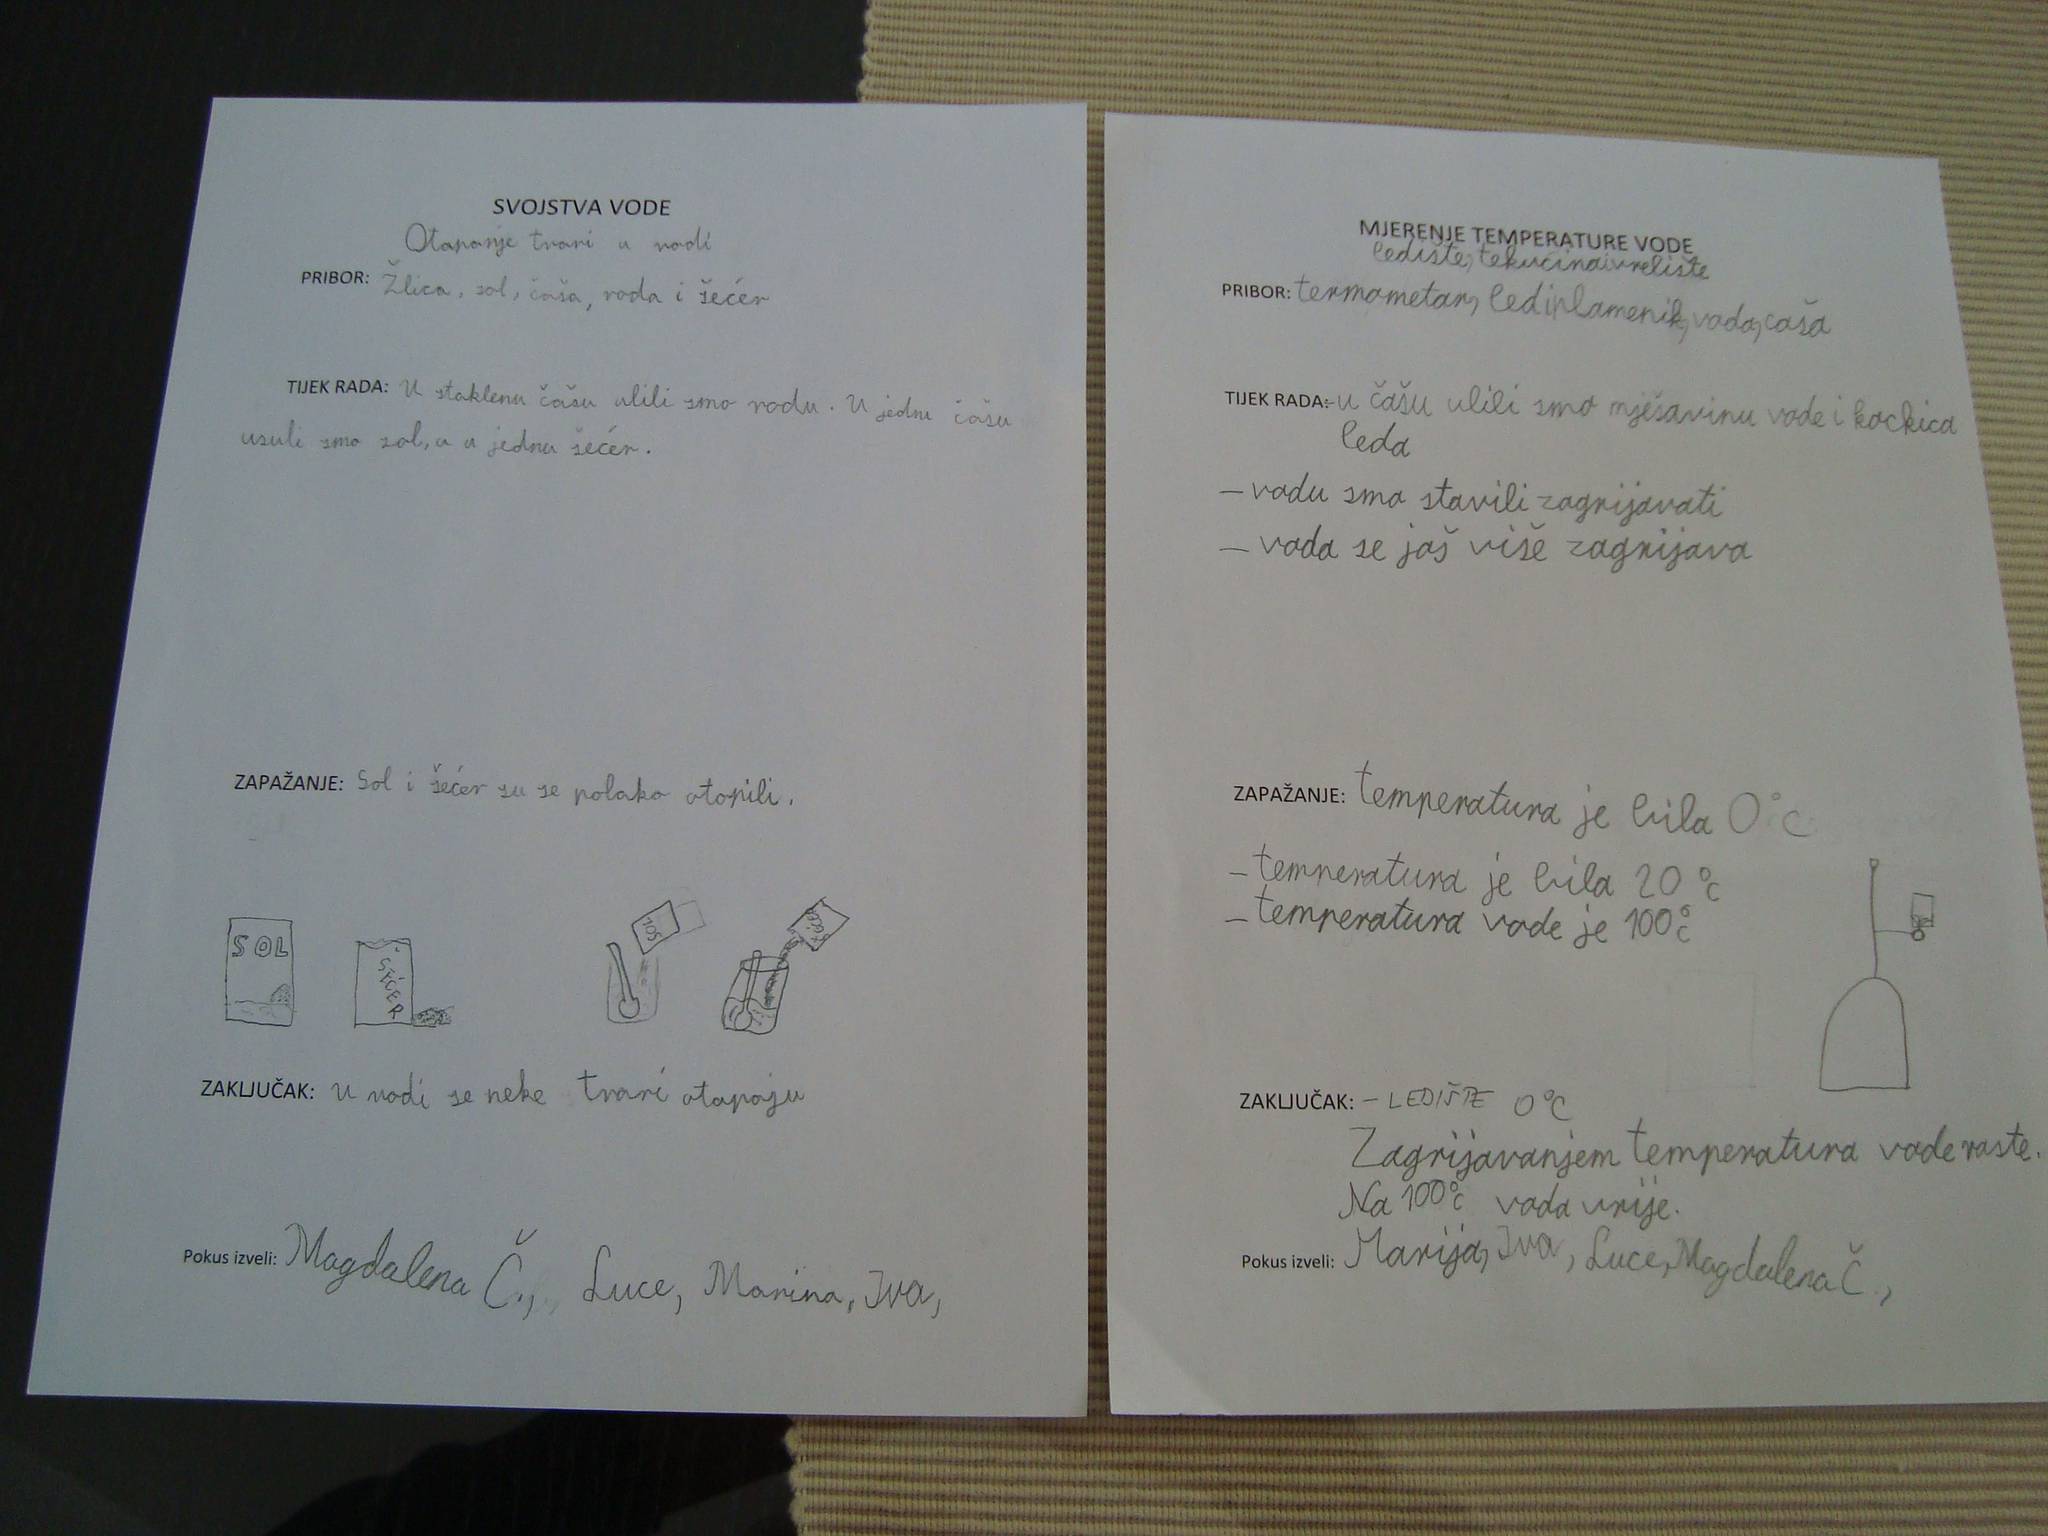 SVOJSTVA VODE
Otapanje tvari u vodi
PRIBOR: Žlica, sol, čaša, voda i šećer
TIJEK RADA: U staklenu čašu ulili smo vodu. U jednu čašu
usuli smo sol, a u jednu šećer.
ZAPAŽANJE: Sol i šećer su se polako otopili.
SOL
ŠEĆER
SOL
ŠEĆER
ZAKLJUČAK: U vodi se neke tvari otapaju
Pokus izveli: Magdalena Č., Luce, Marina, Iva,
MJERENJE TEMPERATURE VODE
ledište, tekućina i vrelište
PRIBOR: termometar, led i plamenik, voda, čaša
TIJEK RADA: - u čašu ulili smo mješavinu vode i kockica
leda
- vodu smo stavili zagrijavati
- voda se još više zagrijava
ZAPAŽANJE: temperatura je bila 0°C
- temperatura je bila 20 °C
- temperatura vode je 100°C
ZAKLJUČAK: - LEDIŠTE 0°C
Zagrijavanjem temperatura vode raste.
Na 100°C voda vrije.
Pokus izveli: Marija, Iva, Luce, Magdalena Č.,